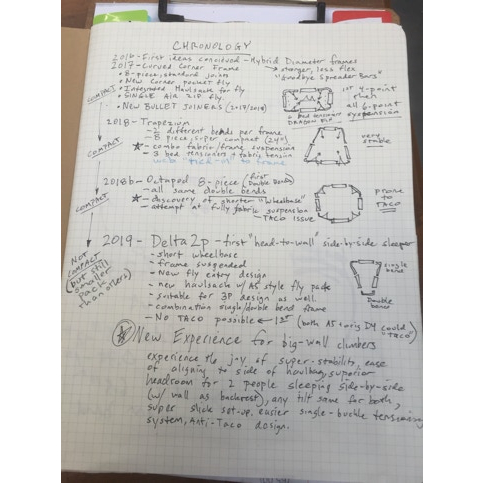 CHRONOLOGY
2016 - First ideas concieved - Hybrid Diameter frames
2017 - Curved Corner Frame → stronger, less flex
"Goodbye Spreader Bars"
• 8-piece, standard joints
• New Corner pocket fly
• Integrated Haulsack for fly
• SINGLE Air ZIP Fly.
• New BULLET JOINERS (2017/2018)
COMPACT
1st 4-point
then
all 6-point
suspension
6 bed tensioners
DRAGON FLY
2018 - Trapezium
- 2 different bends per frame
- 8 piece, super compact (24")
- combo fabric/frame suspension
- 3 bed tensioners + fabric tension
webs "tied-off" to frame
COMPACT
very
stable
2018b - Octapod 8-piece (first Double Bends)
- all same double bends
- discovery of shorter "wheelbase"
- attempt at fully fabric suspension
- TACO issue
COMPACT
prone
to
TACO
2019 - Delta2p - first "head-to-wall" side-by-side sleeper
- short wheelbase
- frame suspended
- New fly entry design
- new haulsack w/ A5 style fly pack
- suitable for 3P design as well.
- combination single/double bend frame
- NO TACO possible ← 1st (both A5 + orig D4 could "taco")
NOT
COMPACT
(but still
smaller
pack
than others)
single
bend
Double
bends
New Experience for big-wall climbers
experience the joy of super-stability, ease
of aligning to side of haulbag, superior
headroom for 2 people sleeping side-by-side
(w/ wall as backrest), any tilt same for both,
super slick set-up, easier single-buckle tensioning
system, Anti-Taco design.